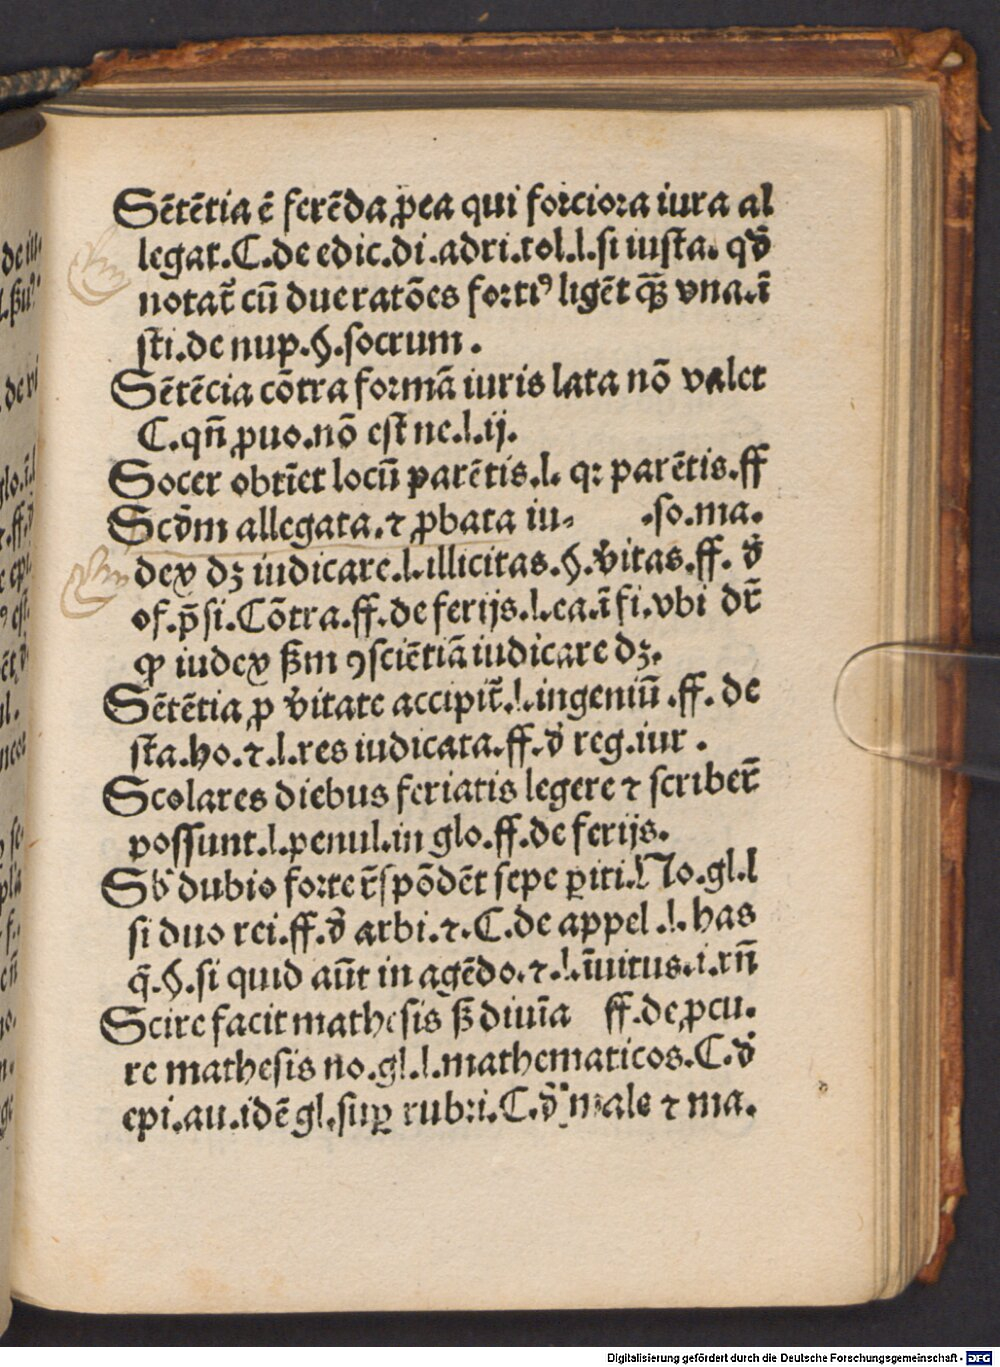 Sētētia ē ferēda ꝓ ea qui forciora iura al
legat.C.de edic.di.adri.tol.l.si iusta. qđ
notat̄ cū due ratōes fortiꝰ ligēt qꝫ̄ vna.ī
sti.de nup.§.socrum.
Sētēcia cōtra formā iuris lata nō valet
C.qn̄ ꝓuo.nō est ne.l.ij.
Socer obtīet locū parētis.l. qꝛ parētis.ff
Scđm allegata.⁊ ꝓbata iu⸗ .so.ma.
dex dꝫ iudicare.l.illicitas.§.v̾itas.ff. đ
of.p̄si.Cōtra.ff.de ferijs.l.ea.ī fi.vbi dr̄
ꝙ iudex ẜm ꝯsciētiā iudicare dꝫ.
Sētētia ꝓ v̾itate accipit̄.l.ingeniū.ff. de
sta.ho.⁊.l.res iudicata.ff.đ reg.iur.
Scolares diebus feriatis legere ⁊ scriber̄
possunt.l.penul.in glo.ff.de ferijs.
Sb̾ dubio forte r̄spōdēt sepe ꝑiti.No.gl.l
si duo rei.ff.đ arbi.⁊.C.de appel.l.has
q̄.§.si quid aūt in agēdo.⁊.l.īuitus.i.rn̄
Scire facit mathesis ẜꝫ diuīa ff.de ꝓcu.
re mathesis no.gl.l.mathematicos.C.đ
epi.au.idē gl.suꝑ rubri.C.đ male ⁊ ma.
Digitalisierung gefördert durch die Deutsche Forschungsgemeinschaft - DFG